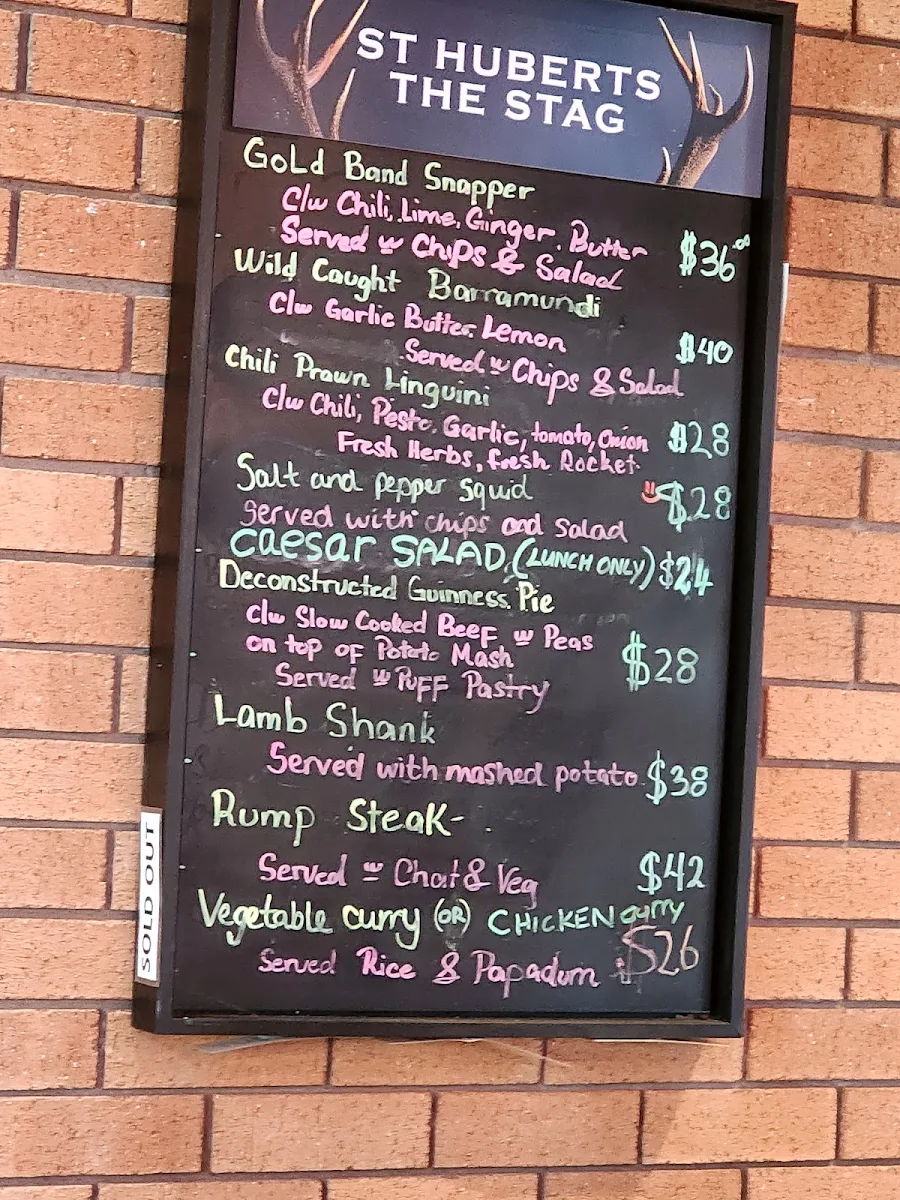 ST HUBERTS
THE STAG
GoLd Band Snapper
C/w Chili, Lime, Ginger, Butter
Served w Chips & Salad
$36.00
Wild Caught Barramundi
C/w Garlic Butter, Lemon
Served w Chips & Salad
$40
Chili Prawn Linguini
C/w Chili, Pesto, Garlic, tomato, Onion
Fresh Herbs, fresh Rocket
$28
Salt and pepper squid
$28
Served with chips and Salad
Caesar SALAD (LUNCH ONLY) $24
Deconstructed Guinness Pie
C/w Slow Cooked Beef w Peas
on top of Potato Mash
$28
Served w Puff Pastry
Lamb Shank
Served with mashed potato $38
Rump Steak-
Served w Chat & Veg $42
Vegetable curry (OR) CHICKEN curry
Served Rice & Papadum $26
SOLD OUT